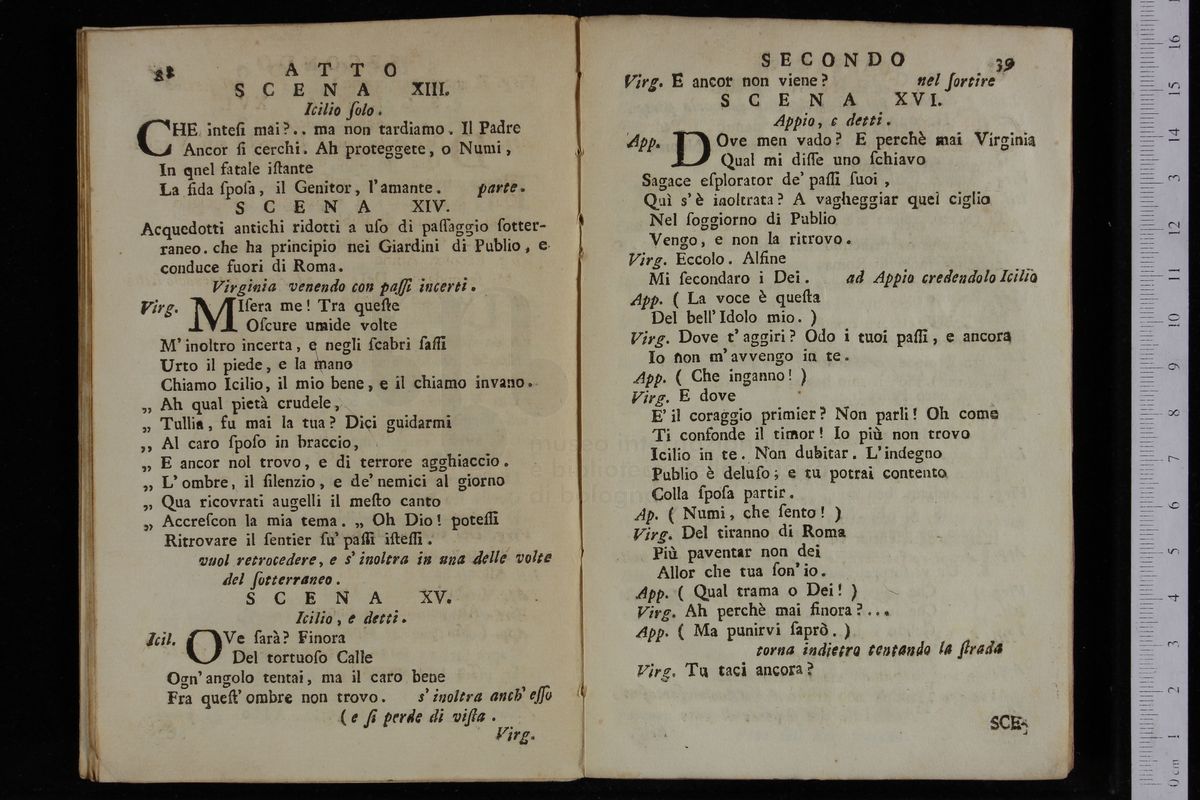 38 ATTO
SCENA XIII.
Icilio ſolo.
CHE inteſi mai?.. ma non tardiamo. Il Padre
Ancor ſi cerchi. Ah proteggete, o Numi,
In qnel fatale iſtante
La fida ſpoſa, il Genitor, l'amante. parte.
SCENA XIV.
Acquedotti antichi ridotti a uſo di paſſaggio ſotter-
raneo. che ha principio nei Giardini di Publio, e
conduce fuori di Roma.
Virginia venendo con paſſi incerti.
Virg. MIſera me! Tra queſte
Oſcure umide volte
M'inoltro incerta, e negli ſcabri ſaſſi
Urto il piede, e la mano
Chiamo Icilio, il mio bene, e il chiamo invano.
„ Ah qual pietà crudele,
„ Tullia, fu mai la tua? Dici guidarmi
,, Al caro ſpoſo in braccio,
„ E ancor nol trovo, e di terrore agghiaccio.
„ L'ombre, il ſilenzio, e de' nemici al giorno
„ Qua ricovrati augelli il meſto canto
„ Accreſcon la mia tema. „ Oh Dio! poteſſi
Ritrovare il ſentier ſu' paſſi iſteſſi.
vuol retrocedere, e s'inoltra in una delle volte
del ſotterraneo.
SCENA XV.
Icilio, e detti.
Icil. OVe ſarà? Finora
Del tortuoſo Calle
Ogn'angolo tentai, ma il caro bene
Fra queſt'ombre non trovo. s'inoltra anch'eſſo
(e ſi perde di viſta.
Virg.
SECONDO 39
Virg. E ancor non viene? nel ſortire
SCENA XVI.
Appio, e detti.
App. DOve men vado? E perchè mai Virginia
Qual mi diſſe uno ſchiavo
Sagace eſplorator de' paſſi ſuoi,
Quì s'è inoltrata? A vagheggiar quel ciglio
Nel ſoggiorno di Publio
Vengo, e non la ritrovo.
Virg. Eccolo. Alfine
Mi ſecondaro i Dei. ad Appio credendolo Icilio
App. (La voce è queſta
Del bell'Idolo mio.)
Virg. Dove t'aggiri? Odo i tuoi paſſi, e ancora
Io non m'avvengo in te.
App. (Che inganno!)
Virg. E dove
E' il coraggio primier? Non parli! Oh come
Ti confonde il timor! Io più non trovo
Icilio in te. Non dubitar. L'indegno
Publio è deluſo; e tu potrai contento
Colla ſpoſa partir.
Ap. (Numi, che ſento!)
Virg. Del tiranno di Roma
Più paventar non dei
Allor che tua ſon'io.
App. (Qual trama o Dei!)
Virg. Ah perchè mai finora?...
App. (Ma punirvi ſaprò.)
torna indietro tentando la ſtrada
Virg. Tu taci ancora?
SCE-